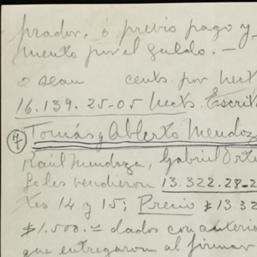 prador, o previo pago y
mento por el saldo. —
o sean cents por hect
16.139.25-05 hects. Escrit
7 Tomás y Alberto Mendoz
Raúl Mendoza, Gabriel Orte
se les vendieron 13.322.28-2
tes 14 y 15; Precio $ 13 32
$1.500.= dados con anterio
que entregaron al firmar